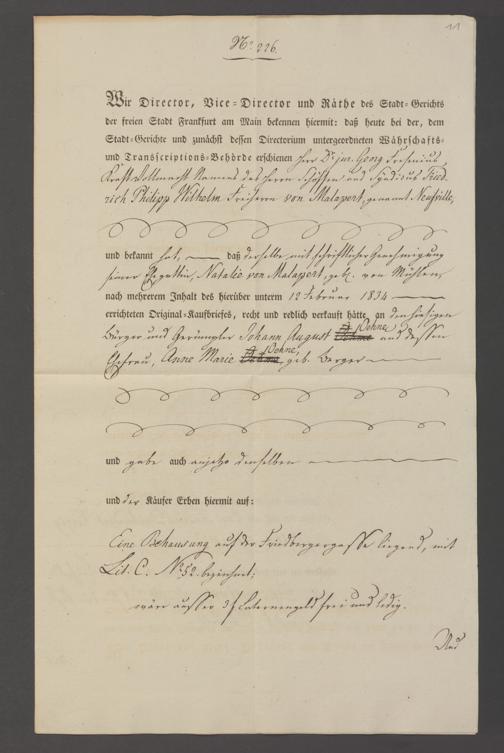 11
No 226.
Wir Director, Vice-Director und Räthe des Stadt-Gerichts
der freien Stadt Frankfurt am Main bekennen hiermit: daß heute bei der, dem
Stadt-Gerichte und zunächst dessen Directorium untergeordneten Währschafts-
und Transcriptions-Behörde erschienen Herr Dr jur. Georg Fresenius
Kraft Vollmacht Namens des Herrn Schöffen und Syndicus Fried-
rich Philipp Wilhelm Freiherrn von Malapert, genannt Neufville,
und bekannt hat, daß derselbe mit schriftlicher Genehmigung
seiner Ehegattin, Natalie von Malapert, geb. von Mühlen,
nach mehrerem Inhalt des hierüber unterm 12 Februar 1834
errichteten Original-Kaufbriefes, recht und redlich verkauft hätte, an den hiesigen
Bürger und Johann August Dohne und dessen
Ehefrau, Anne Marie Dohne, geb. Berger
und gebe auch anjetzo denselben
und der Käufer Erben hiermit auf:
Eine Behausung auf der Friedbergergasse liegend, mit
Lit. C. No 52. bezeichnet;
wäre ausser 3 f Laternengeld frei und ledig.
Und